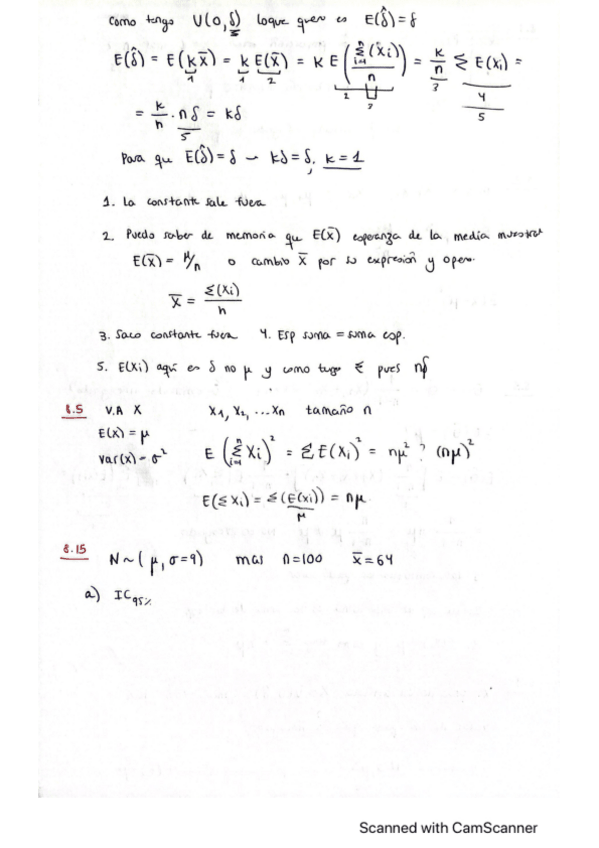 como tengo U(0,δ) lo que quero es E(δ̂)=δ
E(δ̂) = E(k x̄) = k E(x̄) = k E(Σ(xi)/n) = k/n Σ E(xi) =
1 1 2 2 3 3 4 5
= k/n · nδ = kδ
5
Para que E(δ̂)=δ – kδ=δ, k=1
1. La constante sale fuera
2. Puedo saber de memoria que E(x̄) esperanza de la media muestral
E(x̄) = μ/n o cambio x̄ por su expresión y opero.
x̄ = Σ(xi)/n
3. Saco constante fuera 4. Esp suma = suma esp.
5. E(xi) aquí es δ no μ y como tngo Σ pues nδ
8.5 V.A X x1, x2, ...xn tamaño n
E(x)=μ
Var(x)=σ²
E(Σxi)² = ΣE(xi)² = nμ² ? (nμ)²
E(Σxi) = Σ(E(xi)) = nμ
μ
8.15 N~(μ, σ=9) mas n=100 x̄=64
a) IC95%
Scanned with CamScanner